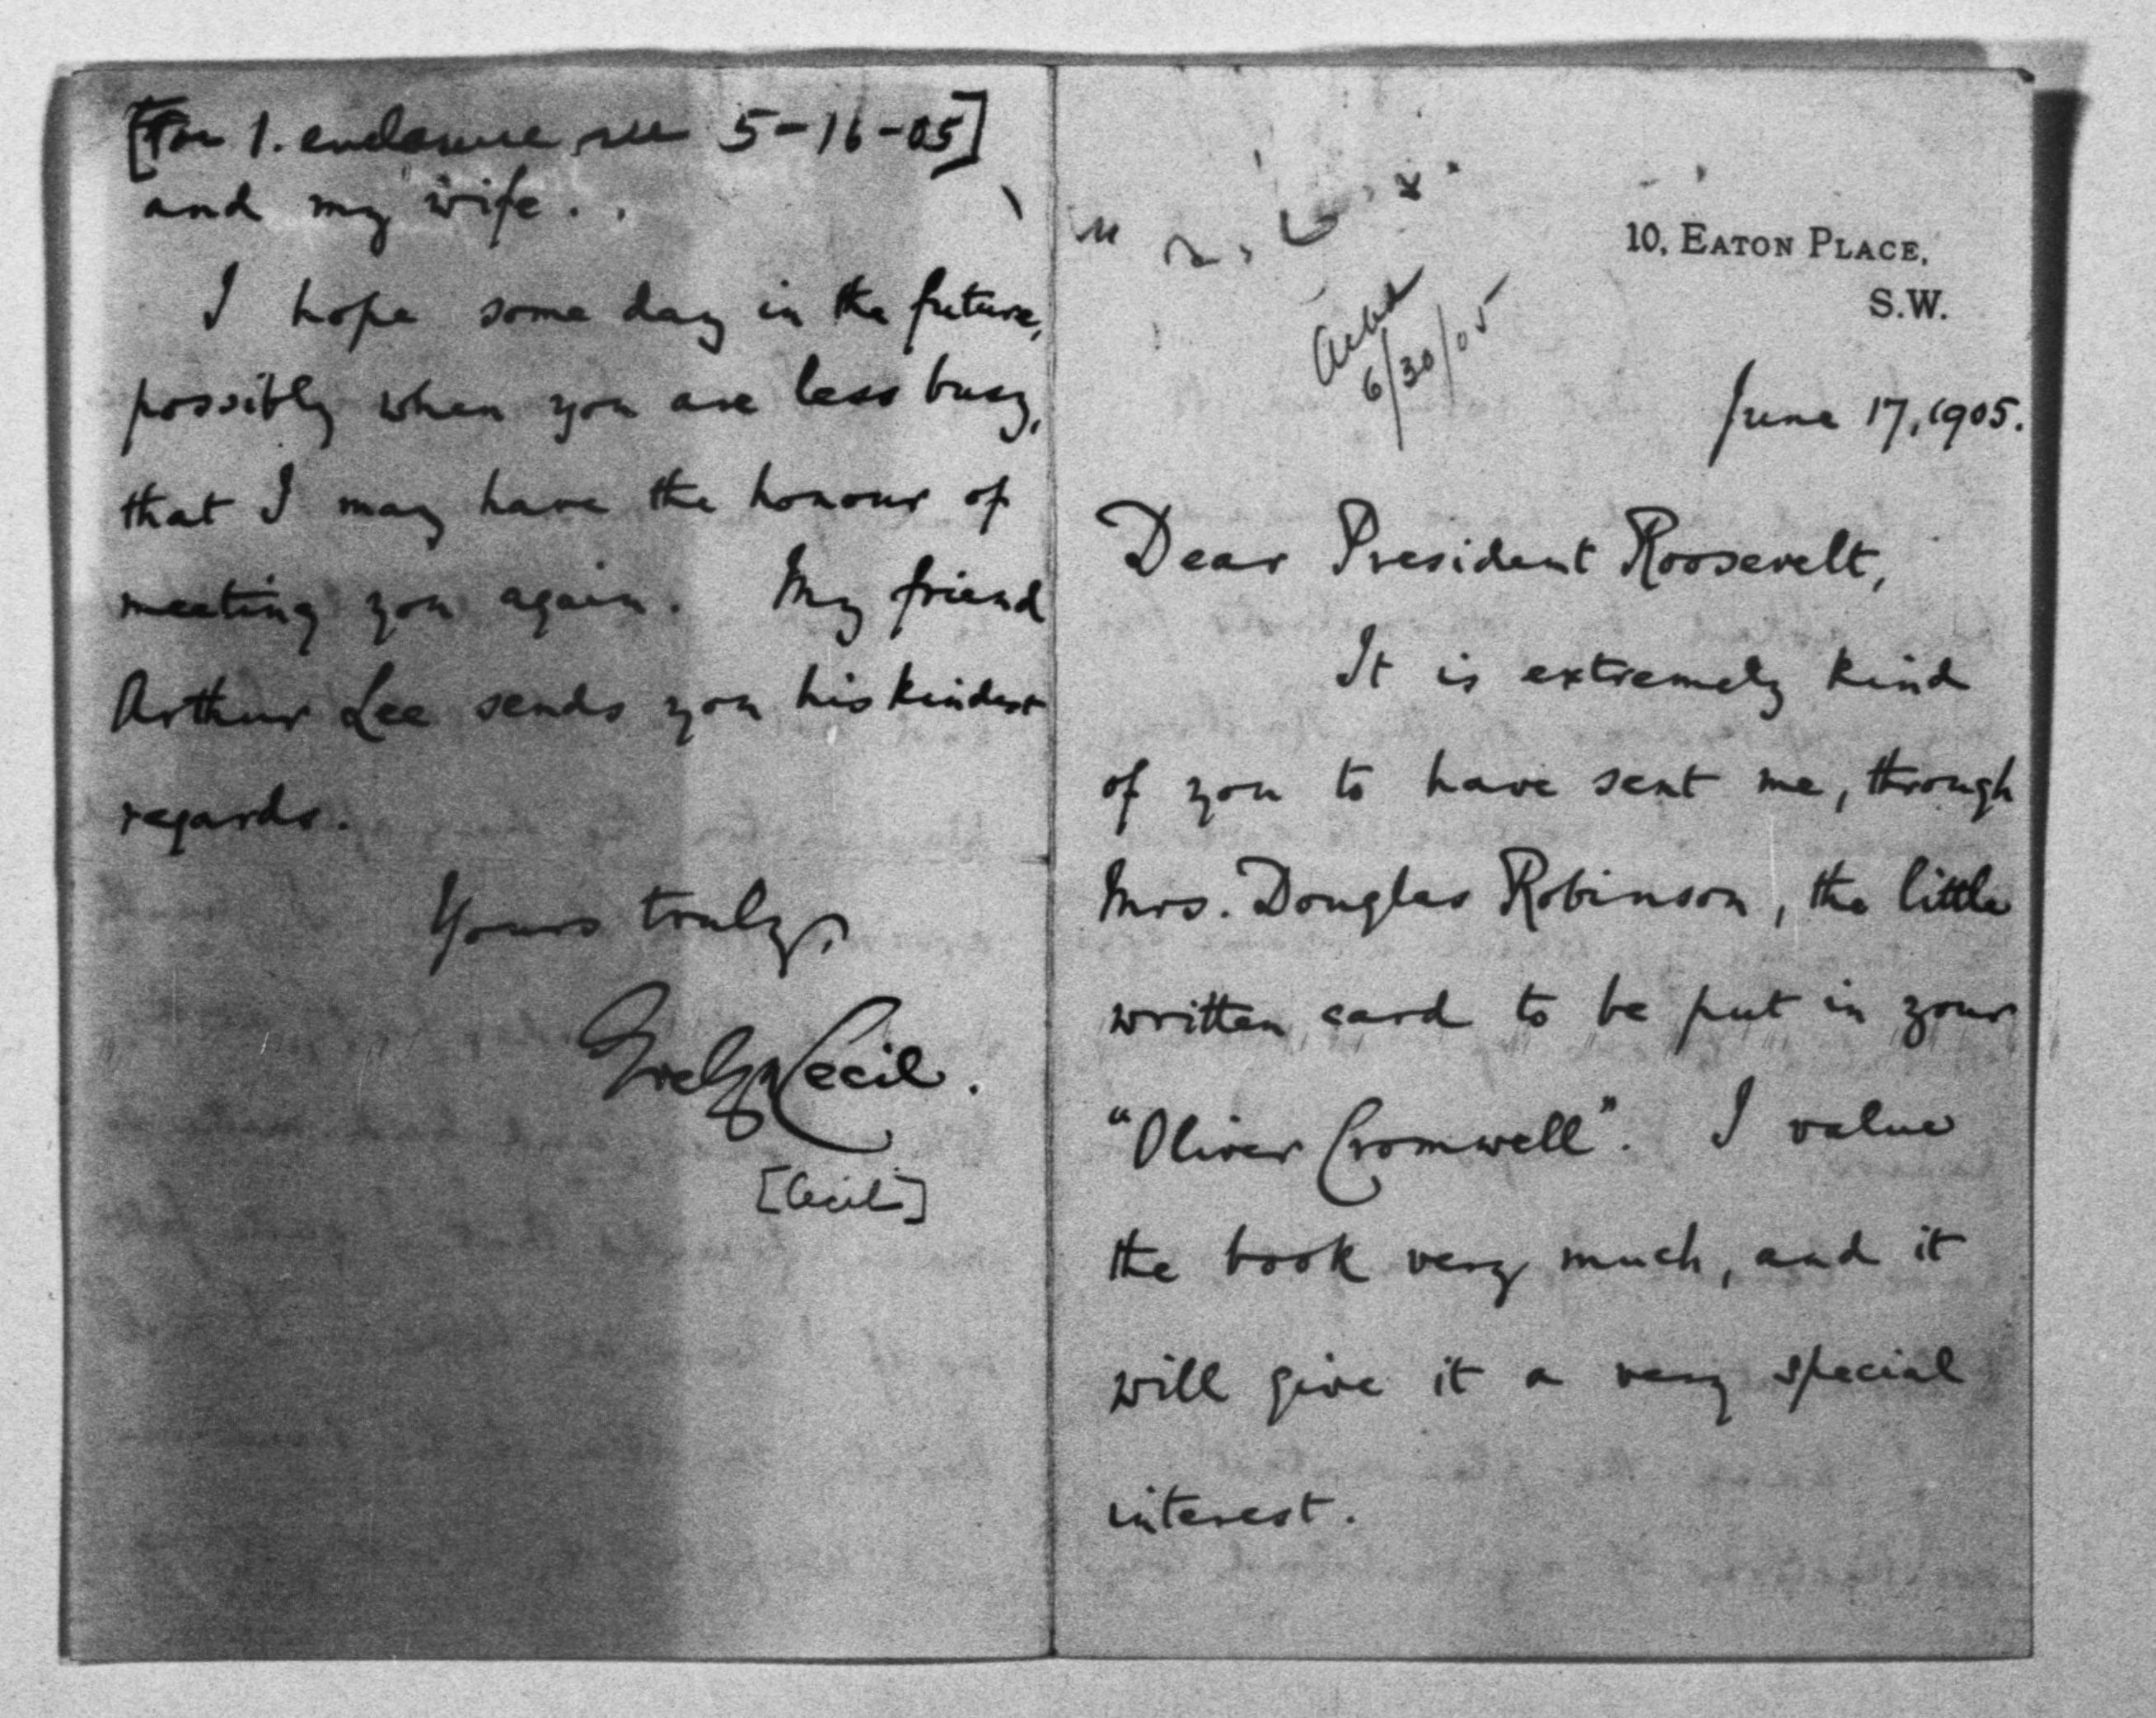 10, EATON PLACE,
S.W.
Ackd
6/30/05
June 17, 1905.
Dear President Roosevelt,
It is extremely kind
of you to have sent me, through
Mrs. Douglas Robinson, the little
written card to be put in your
"Oliver Cromwell". I value
the book very much, and it
will give it a very special
interest.
[For 1. enclosure see 5-16-05]
and my wife.
I hope some day in the future,
possibly when you are less busy,
that I may have the honour of
meeting you again. My friend
Arthur Lee sends you his kindest
regards.
Yours truly,
Evelyn Cecil.
[Cecil]